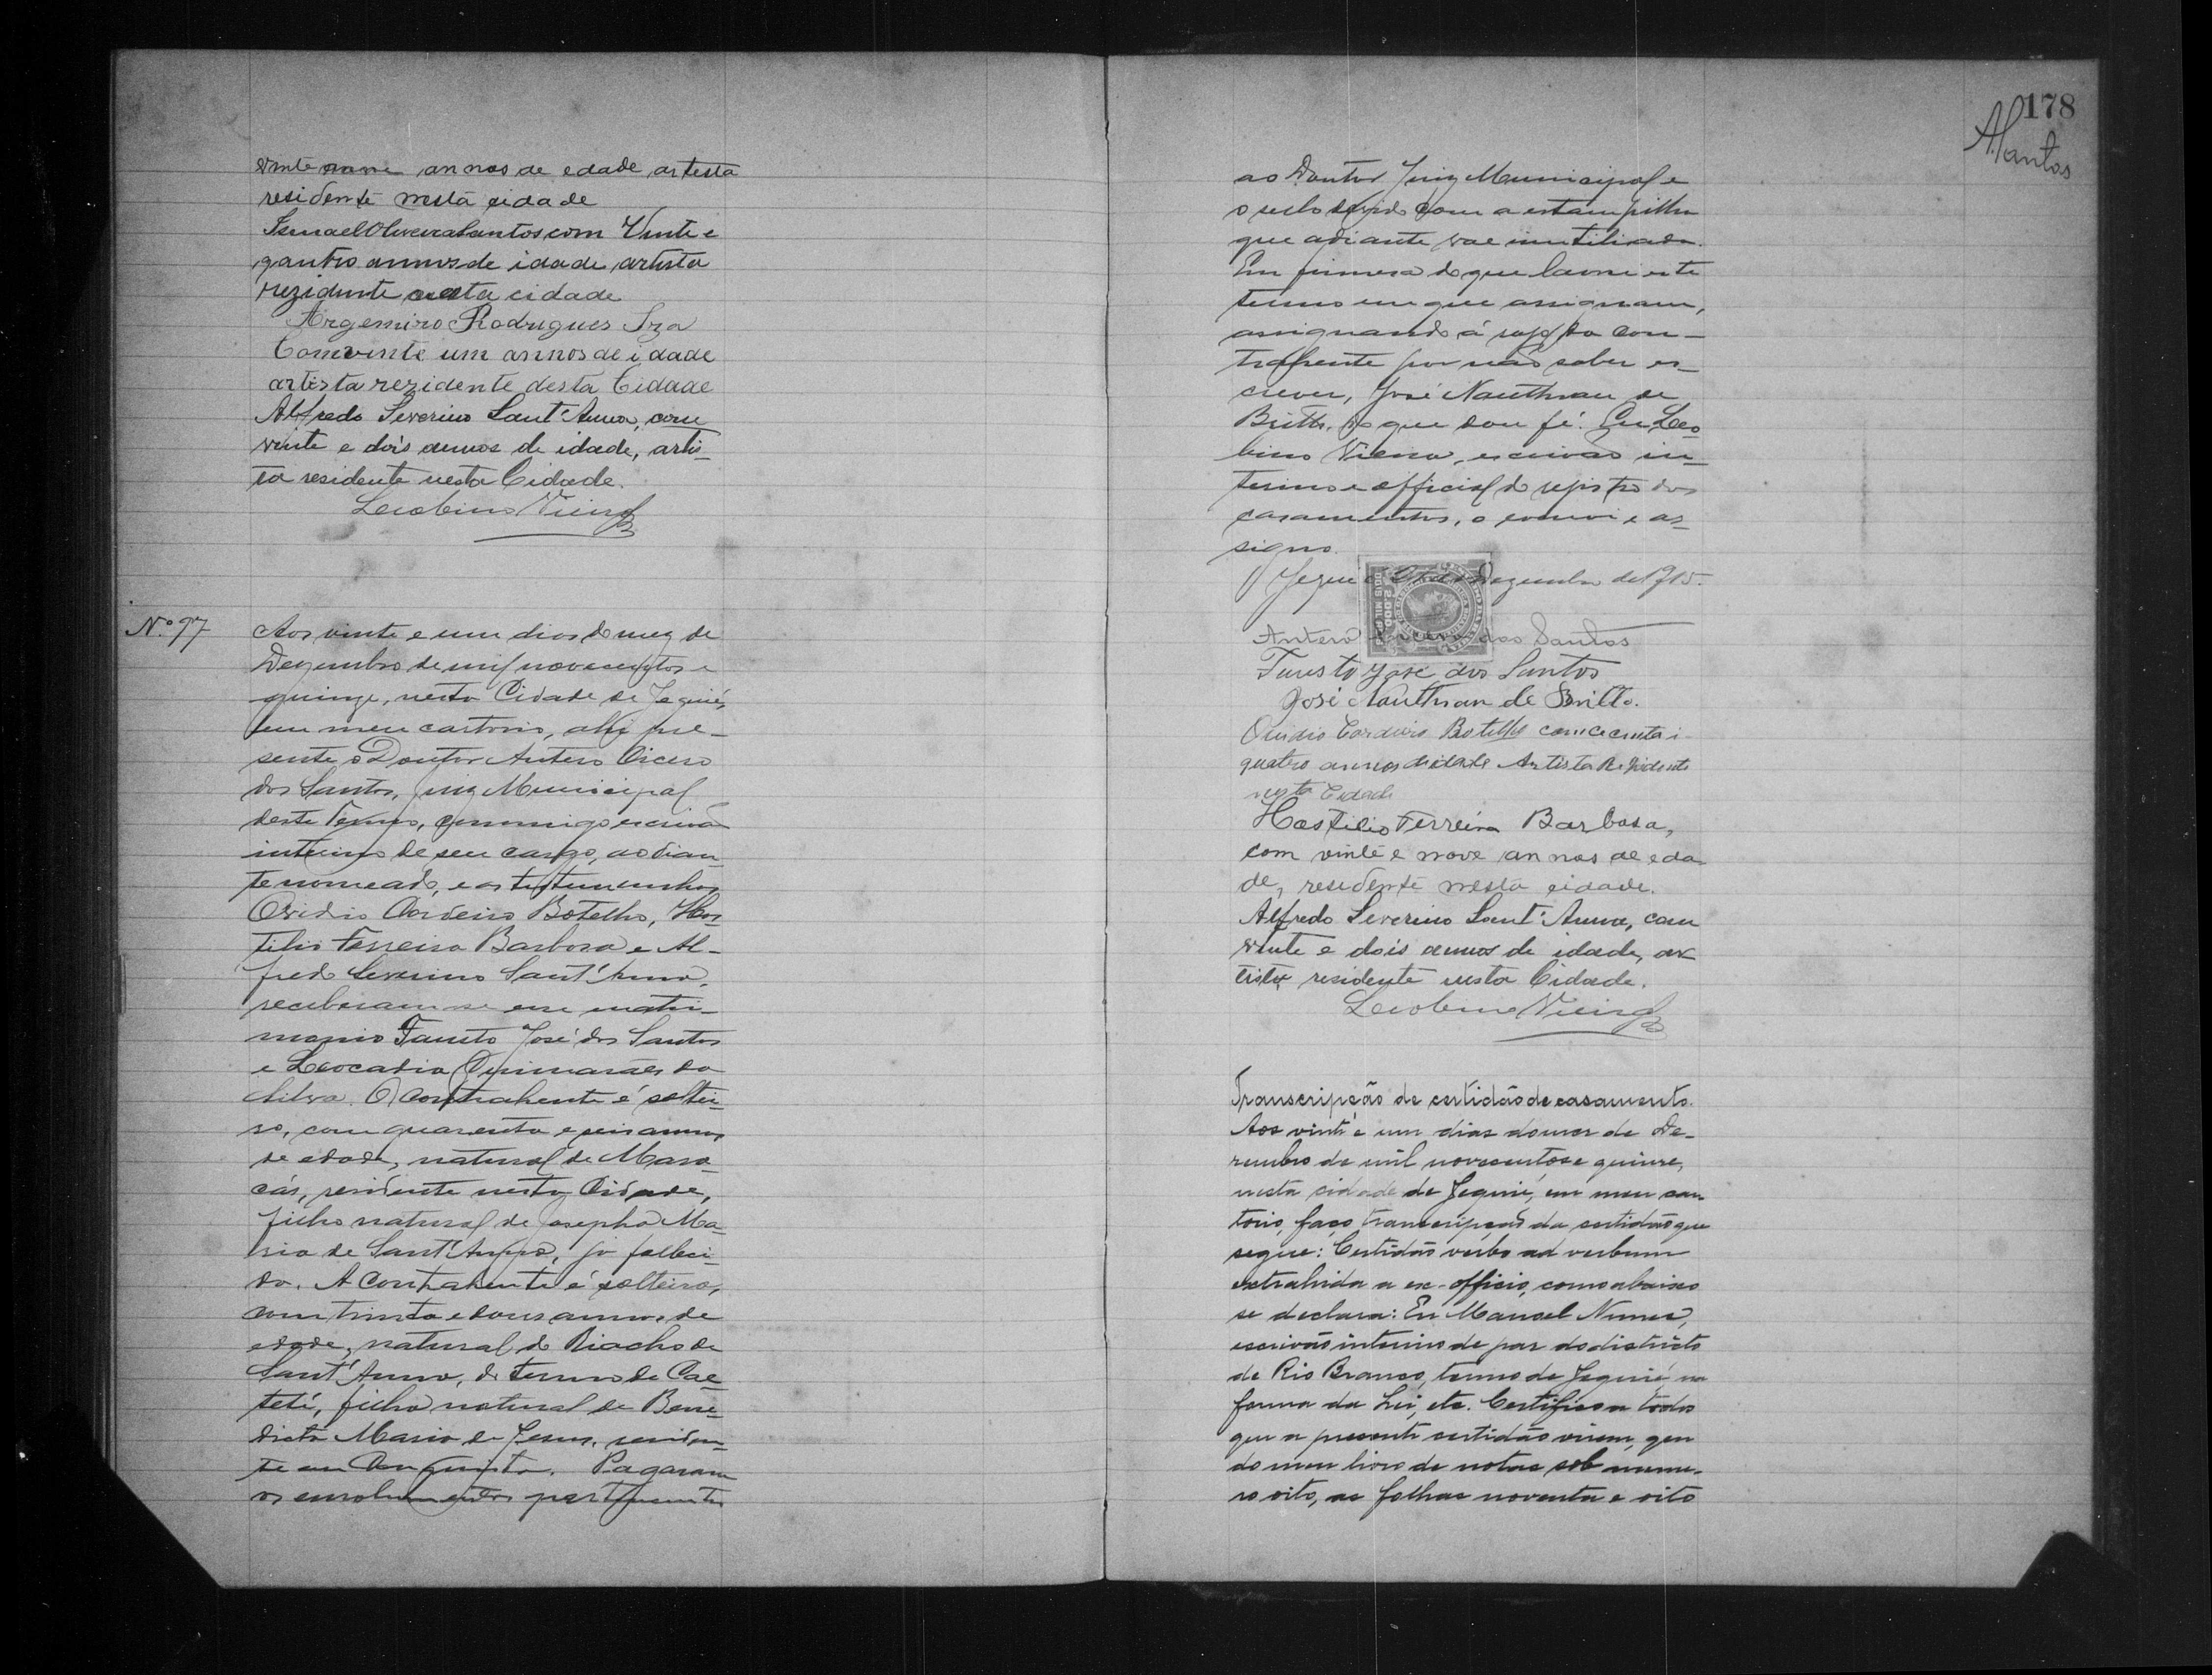 vinte nove annos de edade artesta
residente nesta cidade
Ismael Oliveira Santos com Vinte e
quatro annos de idade, artista
rezidente nesta cidade
Argemiro Rodrigues Sza
Com vinte um annos de idade
artista rezidente desta Cidade
Alfredo Severino Sant'Anna, com
vinte e dois annos de idade, artis-
ta residente nesta Cidade.
Leobino Vieira
Nº 97
Aos vinte e um dias do mez de
Dezembro de mil novecentos e
quinze, nesta Cidade de Jequié,
em meu cartorio, ahi pre-
sente o Doutor Antero Cicero
dos Santos, Juiz Municipal
deste Termo, commigo escrivão
interino de seu cargo, ao dian-
te nomeado, e as testemunhas
Ovidio Cordeiro Botelho, Hos-
tilio Ferreira Barbosa e Al-
fredo Severino Sant'Anna,
receberam-se em matri-
monio Fausto José dos Santos
e Leocadia Guimarães da
Silva. O Contrahente é soltei-
ro, com quarenta e seis annos
de edade, natural de Mara-
cás, residente nesta Cidade,
filho natural de Josepha Ma-
ria de Sant'Anna, já falleci-
da. A Contrahente é solteira,
com trinta e dous annos de
edade, natural do Riacho de
Sant'Anna, do termo de Cae-
teté, filha natural de Bene-
dicta Maria de Jesus, residen-
te em Conquista. Pagaram
os emolumentos pertencentes
178
ASantos
ao Doutor Juiz Municipal e
o sello devido com a estampilha
que adiante vae inutilisada.
Em firmesa do que lavrei este
termo em que assignam,
assignando á rogo da con-
trahente por não saber es-
crever, José Nauthman de
Britto, do que dou fé. Eu Leo-
bino Vieira, escrivão in-
terino e official do registro dos
casamentos, o escrevi e as-
signo.
Jequié 21 de Dezembro de 1915.
Antero Cicero dos Santos
Fausto José dos Santos
José Nauthman de Britto.
Ovidio Cordeiro Botelho com
quatro annos de idade Artista Rezidente
nesta Cidade
Hostilio Ferreira Barbosa,
com vinte e nove annos de eda-
de, residente nesta cidade.
Alfredo Severino Sant'Anna, com
vinte e dois annos de idade, ar-
tista residente nesta Cidade.
Leobino Vieira
Transcripção de certidão de casamento.
Aos vinte e um dias do mez de De-
zembro de mil novecentos e quinze,
nesta cidade de Jequié, em meu car-
torio, faço transcripção da certidão que
segue: Certidão verbo ad verbum
extrahida a ex-officio, como abaixo
se declara: Eu Manoel Nunes,
escrivão interino de paz do districto
de Rio Branco, termo de Jequié, na
forma da Lei, etc. Certifico a todos
que a presente certidão virem, que
do meu livro de notas sob nume-
ro oito, as folhas noventa e oito